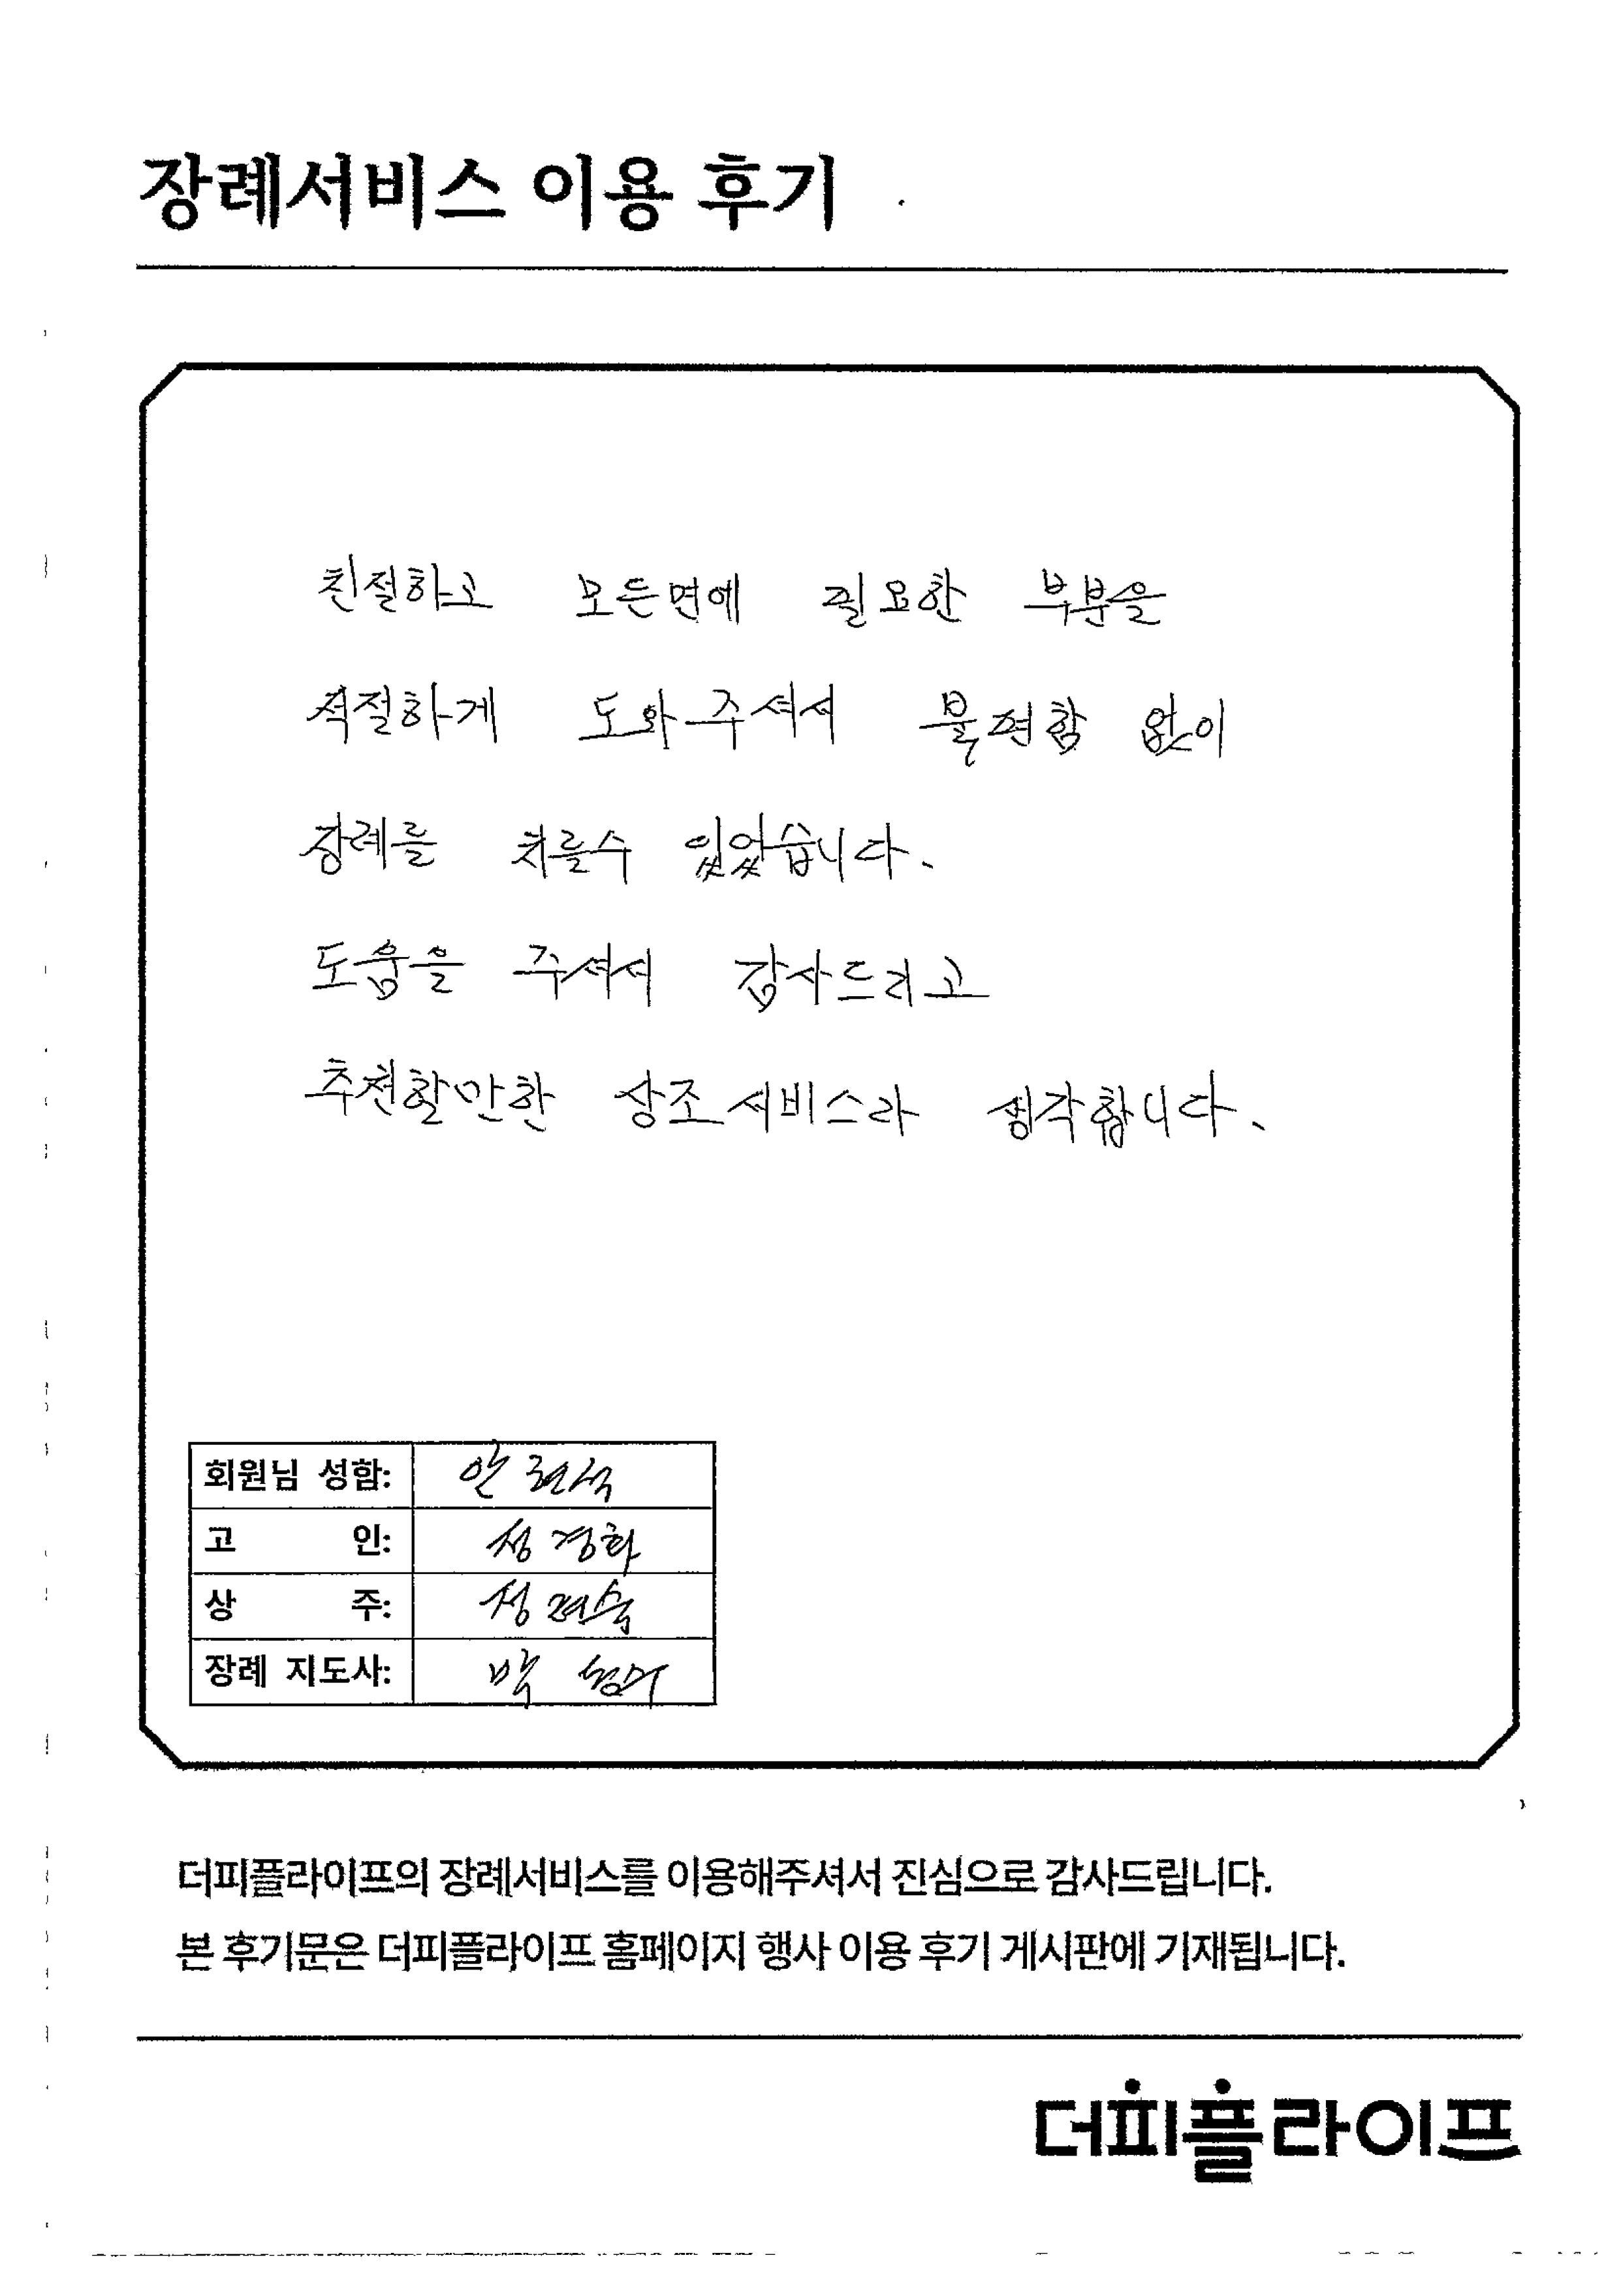 장례서비스 이용 후기
친절하고 모든면에 필요한 부분을
적절하게 도와주셔서 불편함 없이
장례를 치를수 있었습니다.
도움을 주셔서 감사드리고
추천할만한 상조서비스라 생각합니다.
회원님 성함: 안
고 인: 성경화
상 주:
장례 지도사: 박
더피플라이프의 장례서비스를 이용해주셔서 진심으로 감사드립니다.
본 후기문은 더피플라이프 홈페이지 행사 이용 후기 게시판에 기재됩니다.
더피플라이프